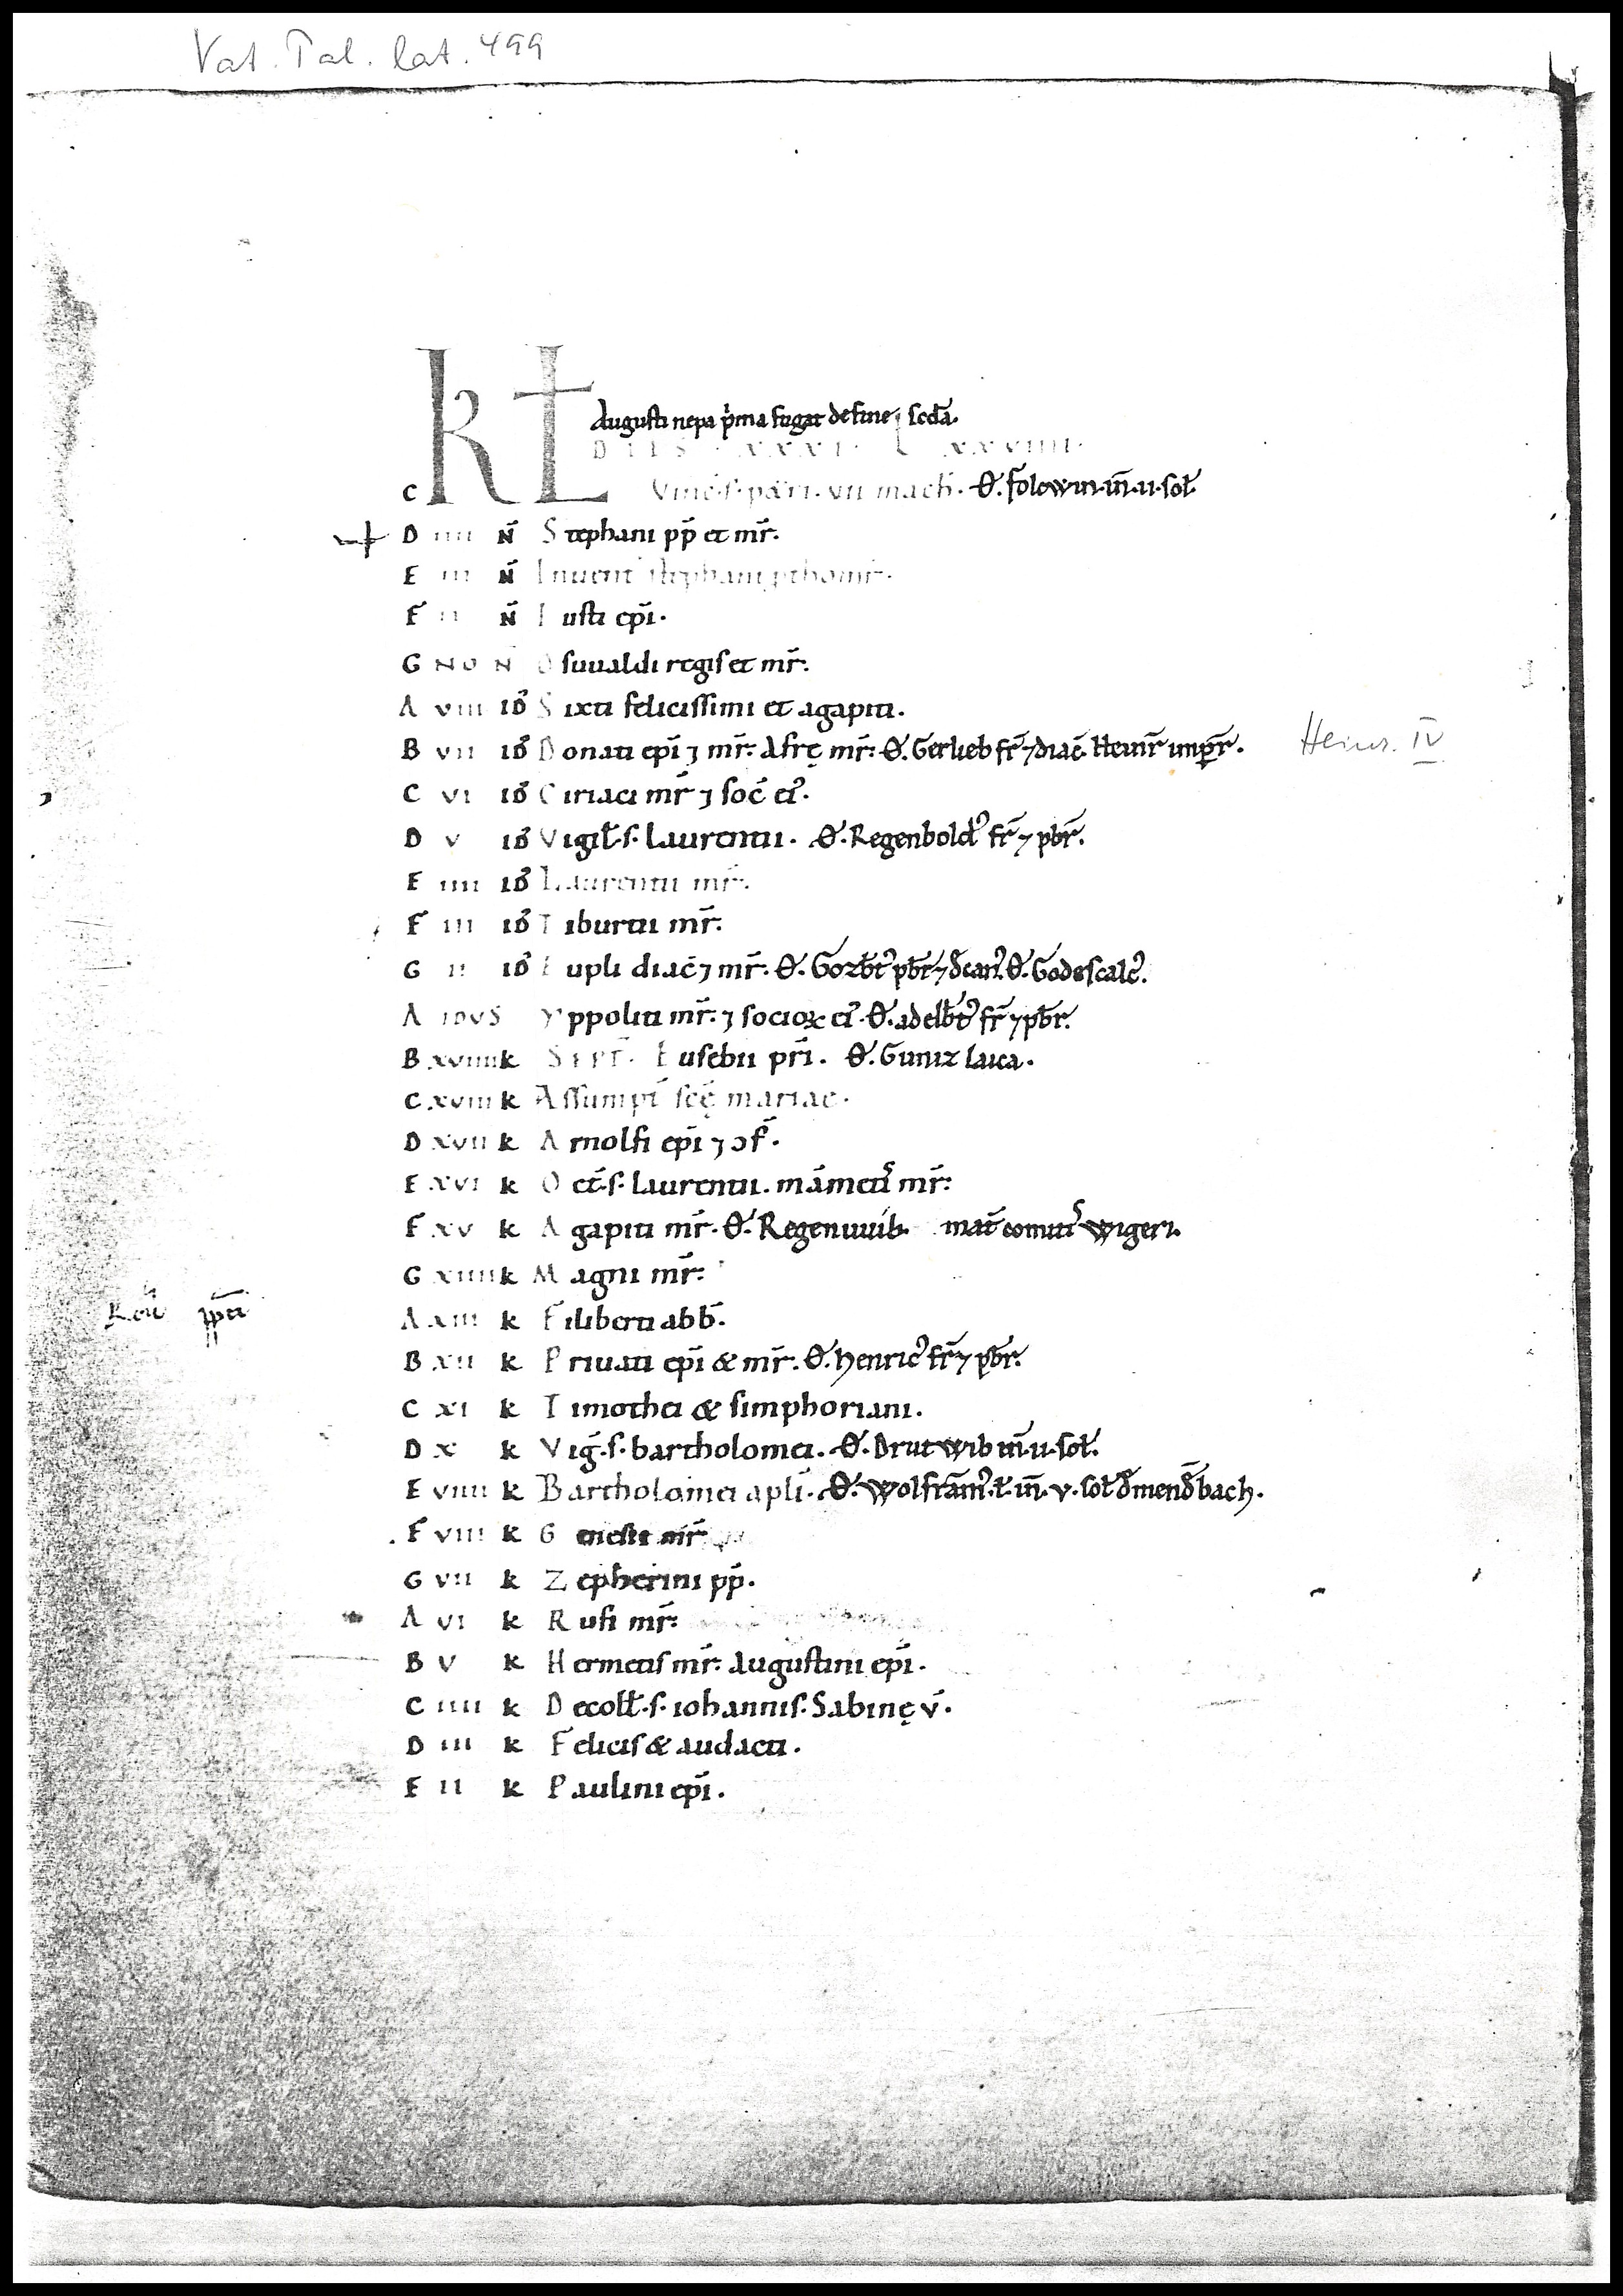 Vat. Pal. lat. 499
KL
Augusti nepa p̾ma fugat de fine scd̄a.
DIES XXXI L XXVIIII.
C Vinc̄.s. petri. vii mach̄. Ꝋ. folowin.m̄.ii.sol̄.
D iiii N̄ Stephani pp̄ et mr̄.
E iii N̄ Inuent̄ stephani pthomr̄.
F ii N̄ Iusti ep̄i.
G NO N Osuualdi regis et mr̄.
A viii id̄ Sixti felicissimi et agapiti.
B vii id̄ Donati ep̄i ⁊ mr̄. Afrę mr̄. Ꝋ. Gerlieb fr̄ ⁊ diac̄. Heinr̄ imp̄r. Heinr. IV
C vi id̄ Ciriaci mr̄ ⁊ soc̄ ei᾽.
D v id̄ Vigil̄.s. Laurentii. Ꝋ. Regenbold᾽ fr̄ ⁊ pb̄r.
E iiii id̄ Laurentii mr̄.
F iii id̄ Tiburtii mr̄.
G ii id̄ Eupli diac̄ ⁊ mr̄. Ꝋ. Gozb̄t᾽ pb̄r ⁊ d̄can᾽. Ꝋ. Godescalc᾽.
A IDVS Yppoliti mr̄. ⁊ socioꝝ ei᾽. Ꝋ. adelb̄t᾽ fr̄ ⁊ pb̄r.
B xviiii k SEPT̄. Eusebii pr̄i. Ꝋ. Guniz laica.
C xviii k Assumpt̄ sc̄ę mariae.
D xvii k Arnolfi ep̄i ⁊ ↄf̄.
E xvi k Oct̄.s. Laurentii. māmetis mr̄.
F xv k Agapiti mr̄. Ꝋ. Regenuuib. mat̄ comitis wigeri.
G xiiii k Magni mr̄.
A xiii k Filiberti abb̄.
B xii k Priuati ep̄i & mr̄. Ꝋ. henric᾽ fr̄ ⁊ pb̄r.
C xi k Timothei & simphoriani.
D x k Viḡ.s. bartholomei. Ꝋ. Drutwib m̄.ii.sol̄.
E viiii k Bartholomei apl̄i. Ꝋ. Wolfrām᾽.t̄.m̄.v.sol̄ d̄ mend̄bach.
F viii k Genesii mr̄
G vii k Zepherini pp̄.
A vi k Rufi mr̄.
B v k Hermetis mr̄. Augustini ep̄i.
C iiii k Decoll̄.s. iohannis. Sabinę v̄.
D iii k Felicis & audacti.
E ii k Paulini ep̄i.